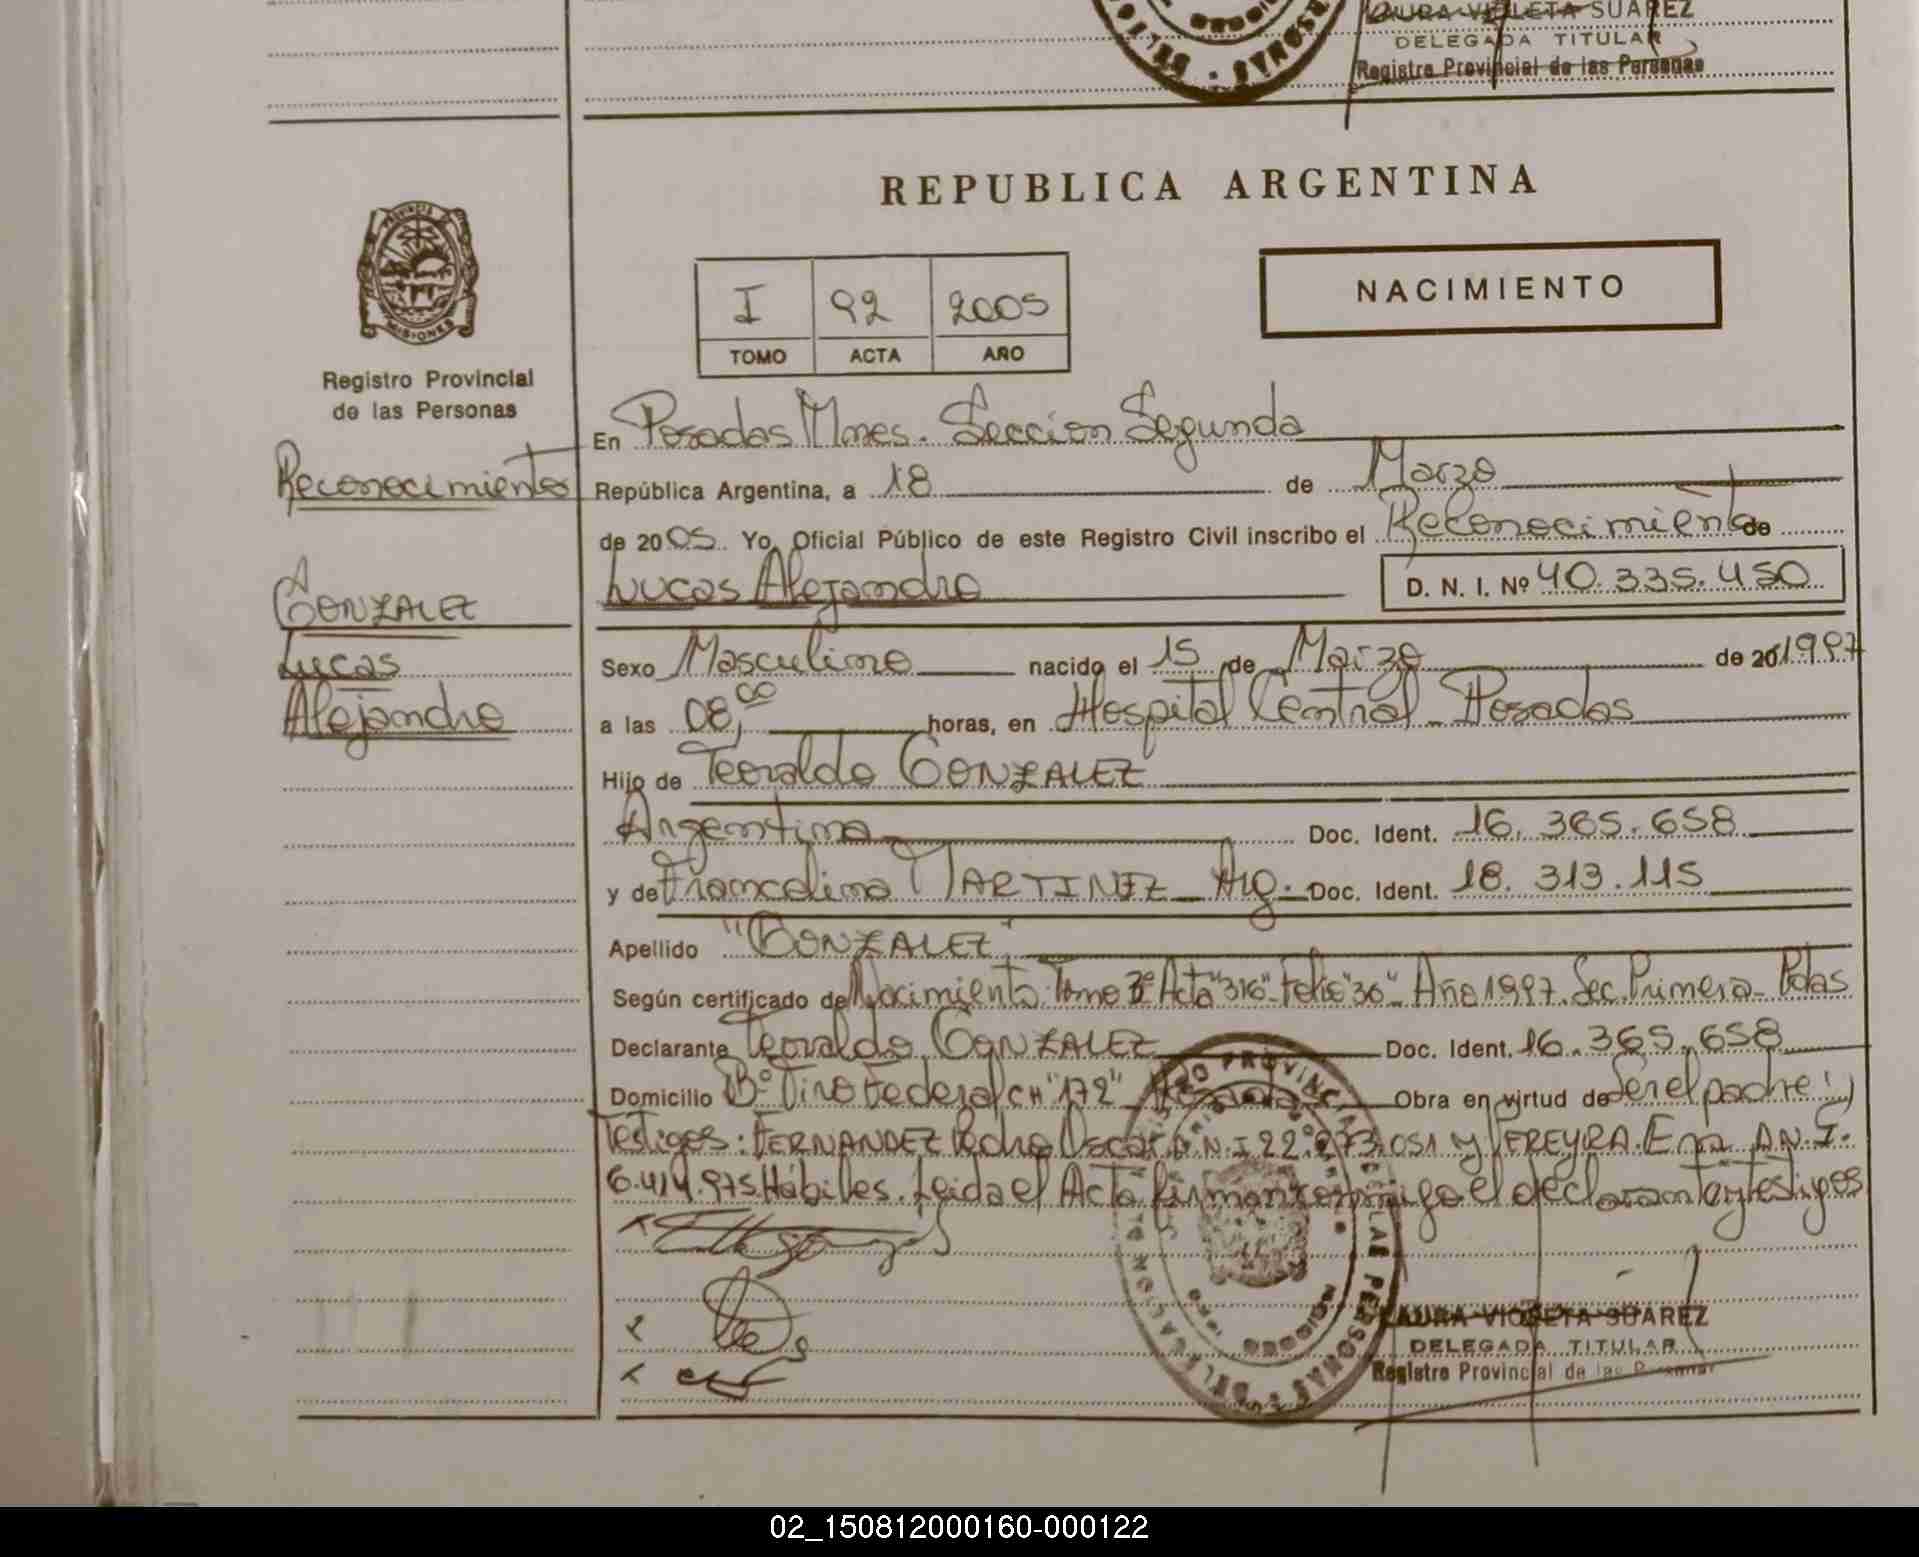 LAURA VIOLETA SUAREZ
DELEGADA TITULAR
Registro Provincial de las Personas
REPUBLICA ARGENTINA
PROVINCIA
MISIONES
Registro Provincial
de las Personas
I 92 2005
TOMO ACTA AÑO
NACIMIENTO
Reconocimiento
GONZALEZ
Lucas
Alejandro
En Posadas Mnes. Sección Segunda
República Argentina, a 18 de Marzo
de 2005. Yo, Oficial Público de este Registro Civil inscribo el Reconocimiento de
Lucas Alejandro D. N. I. Nº 40.335.450
Sexo Masculino nacido el 15 de Marzo de 20 1997
a las 08,00 horas, en Hospital Central Posadas
Hijo de Teovaldo GONZALEZ
Argentino Doc. Ident. 16.365.658
y de Francelina MARTINEZ Arg. Doc. Ident. 18.313.115
Apellido "GONZALEZ"
Según certificado de Nacimiento Tomo 3º Acta "316" Folio "36" Año 1997. Sec. Primera Pdas
Declarante Teovaldo GONZALEZ Doc. Ident. 16.365.658
Domicilio Bº Tiro Federal CH "172" Posadas Obra en virtud de Ser el padre
Testigos: FERNANDEZ Pedro Oscar D.N.I 22.873.051 y PEREYRA. Ena D.N.I.
6.414.975 Hábiles. Leida el Acta firman conmigo el declarante y testigos
LAURA VIOLETA SUAREZ
DELEGADA TITULAR
Registro Provincial de las Personas
02_150812000160-000122